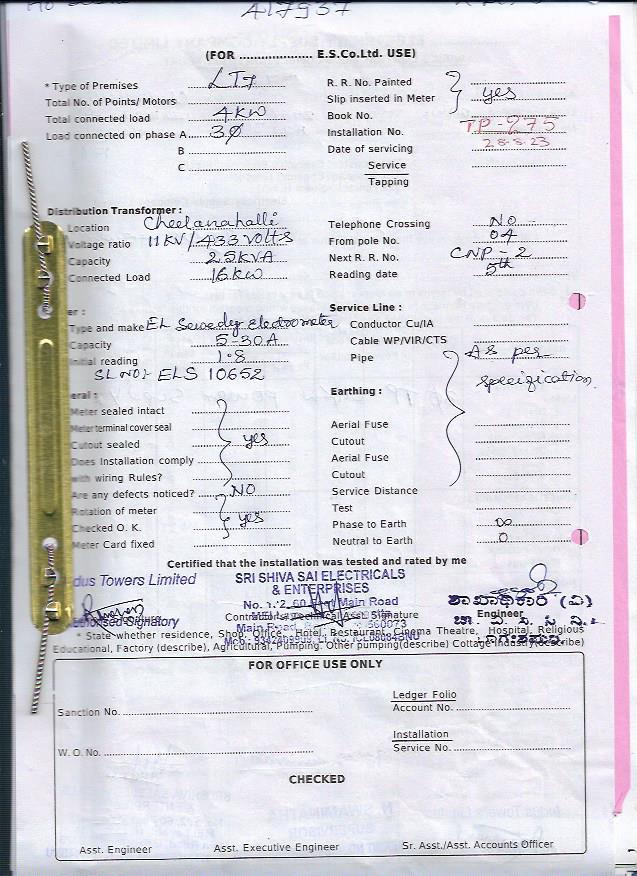 417957
(FOR .................... E.S.Co.Ltd. USE)
* Type of Premises LT7
Total No. of Points/ Motors
Total connected load 4KW
Load connected on phase A 3Ø
B
C
R. R. No. Painted
Slip inserted in Meter yes
Book No.
Installation No. TP-275
Date of servicing 28-8-23
Service
Tapping
Distribution Transformer :
Location Cheelanahalli
Voltage ratio 11KV/433 VOLTS
Capacity 25KVA
Connected Load 16KW
Telephone Crossing NO
From pole No. 04
Next R. R. No. CNP-2
Reading date 5th
er :
Type and make EL Sewedy Electrometer
Capacity 5-30A
Initial reading 1.8
SL NO:- ELS 10652
Service Line :
Conductor Cu/IA
Cable WP/VIR/CTS
Pipe As per
specification
eral :
Meter sealed intact
Meter terminal cover seal
Cutout sealed yes
Does Installation comply
with wiring Rules?
Are any defects noticed? NO
Rotation of meter
Checked O. K. yes
Meter Card fixed
Earthing :
Aerial Fuse
Cutout
Aerial Fuse
Cutout
Service Distance
Test
Phase to Earth ∞
Neutral to Earth 0
Certified that the installation was tested and rated by me
dus Towers Limited
SRI SHIVA SAI ELECTRICALS
& ENTERPRISES
Main Road
Main Road
ಶಾಖಾಧಿಕಾರಿ (ವಿ)
Authorised Signatory
Asst. Signature
Engineer
* State whether residence, Shop, Office, Hotel, Restaurant, Cinema Theatre, Hospital, Religious
Educational, Factory (describe), Agricultural, Pumping. Other pumping(describe) Cottage Industry(describe)
FOR OFFICE USE ONLY
Sanction No.
Ledger Folio
Account No.
W. O. No.
Installation
Service No.
CHECKED
Asst. Engineer Asst. Executive Engineer Sr. Asst./Asst. Accounts Officer